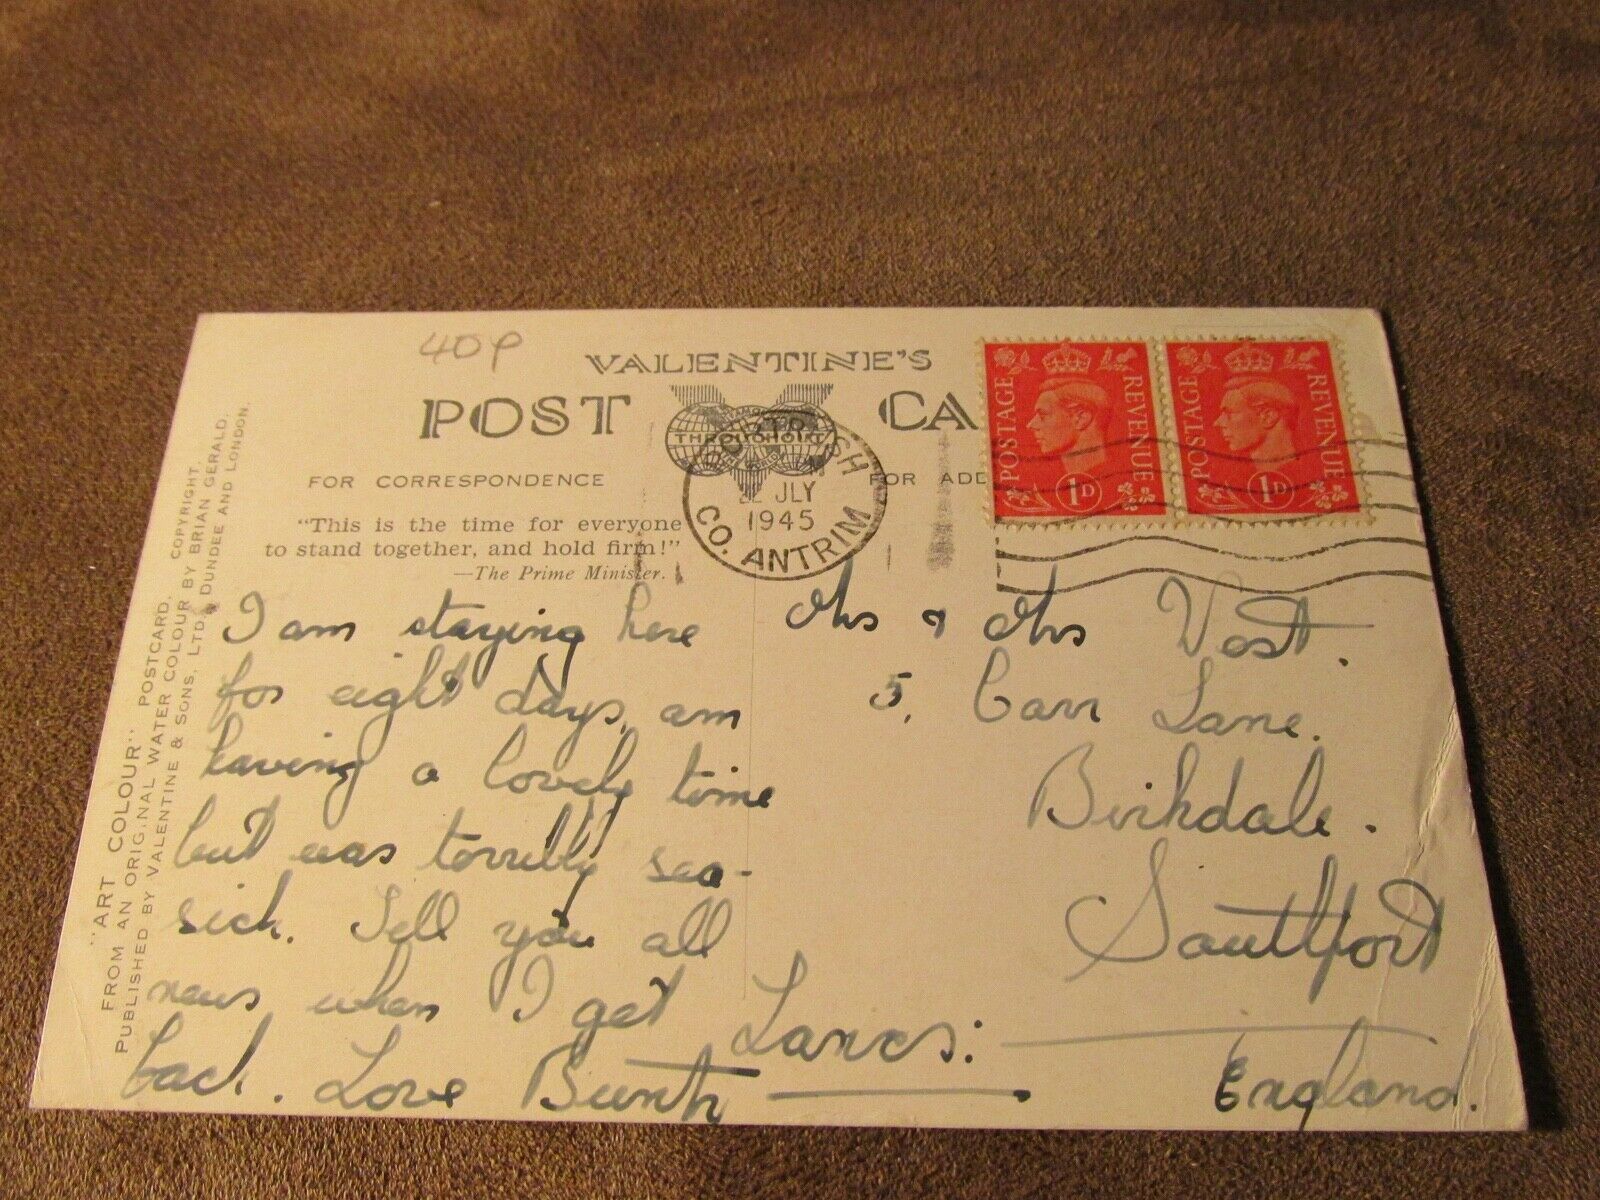 40p
VALENTINE'S
POST CA
THROUGHOUT
FOR CORRESPONDENCE
FOR ADD
"This is the time for everyone
to stand together, and hold firm!"
—The Prime Minister.
SH
JLY
1945
CO. ANTRIM
POSTAGE REVENUE
1D
POSTAGE REVENUE
1D
"ART COLOUR" POSTCARD. COPYRIGHT.
FROM AN ORIGINAL WATER COLOUR BY BRIAN GERALD.
PUBLISHED BY VALENTINE & SONS, LTD., DUNDEE AND LONDON.
I am staying here
for eight days, am
having a lovely time
but was terribly sea-
sick. Tell you all
news when I get
back. Love
5, Carr Lane.
Birkdale.
Southport
Lancs:
England.